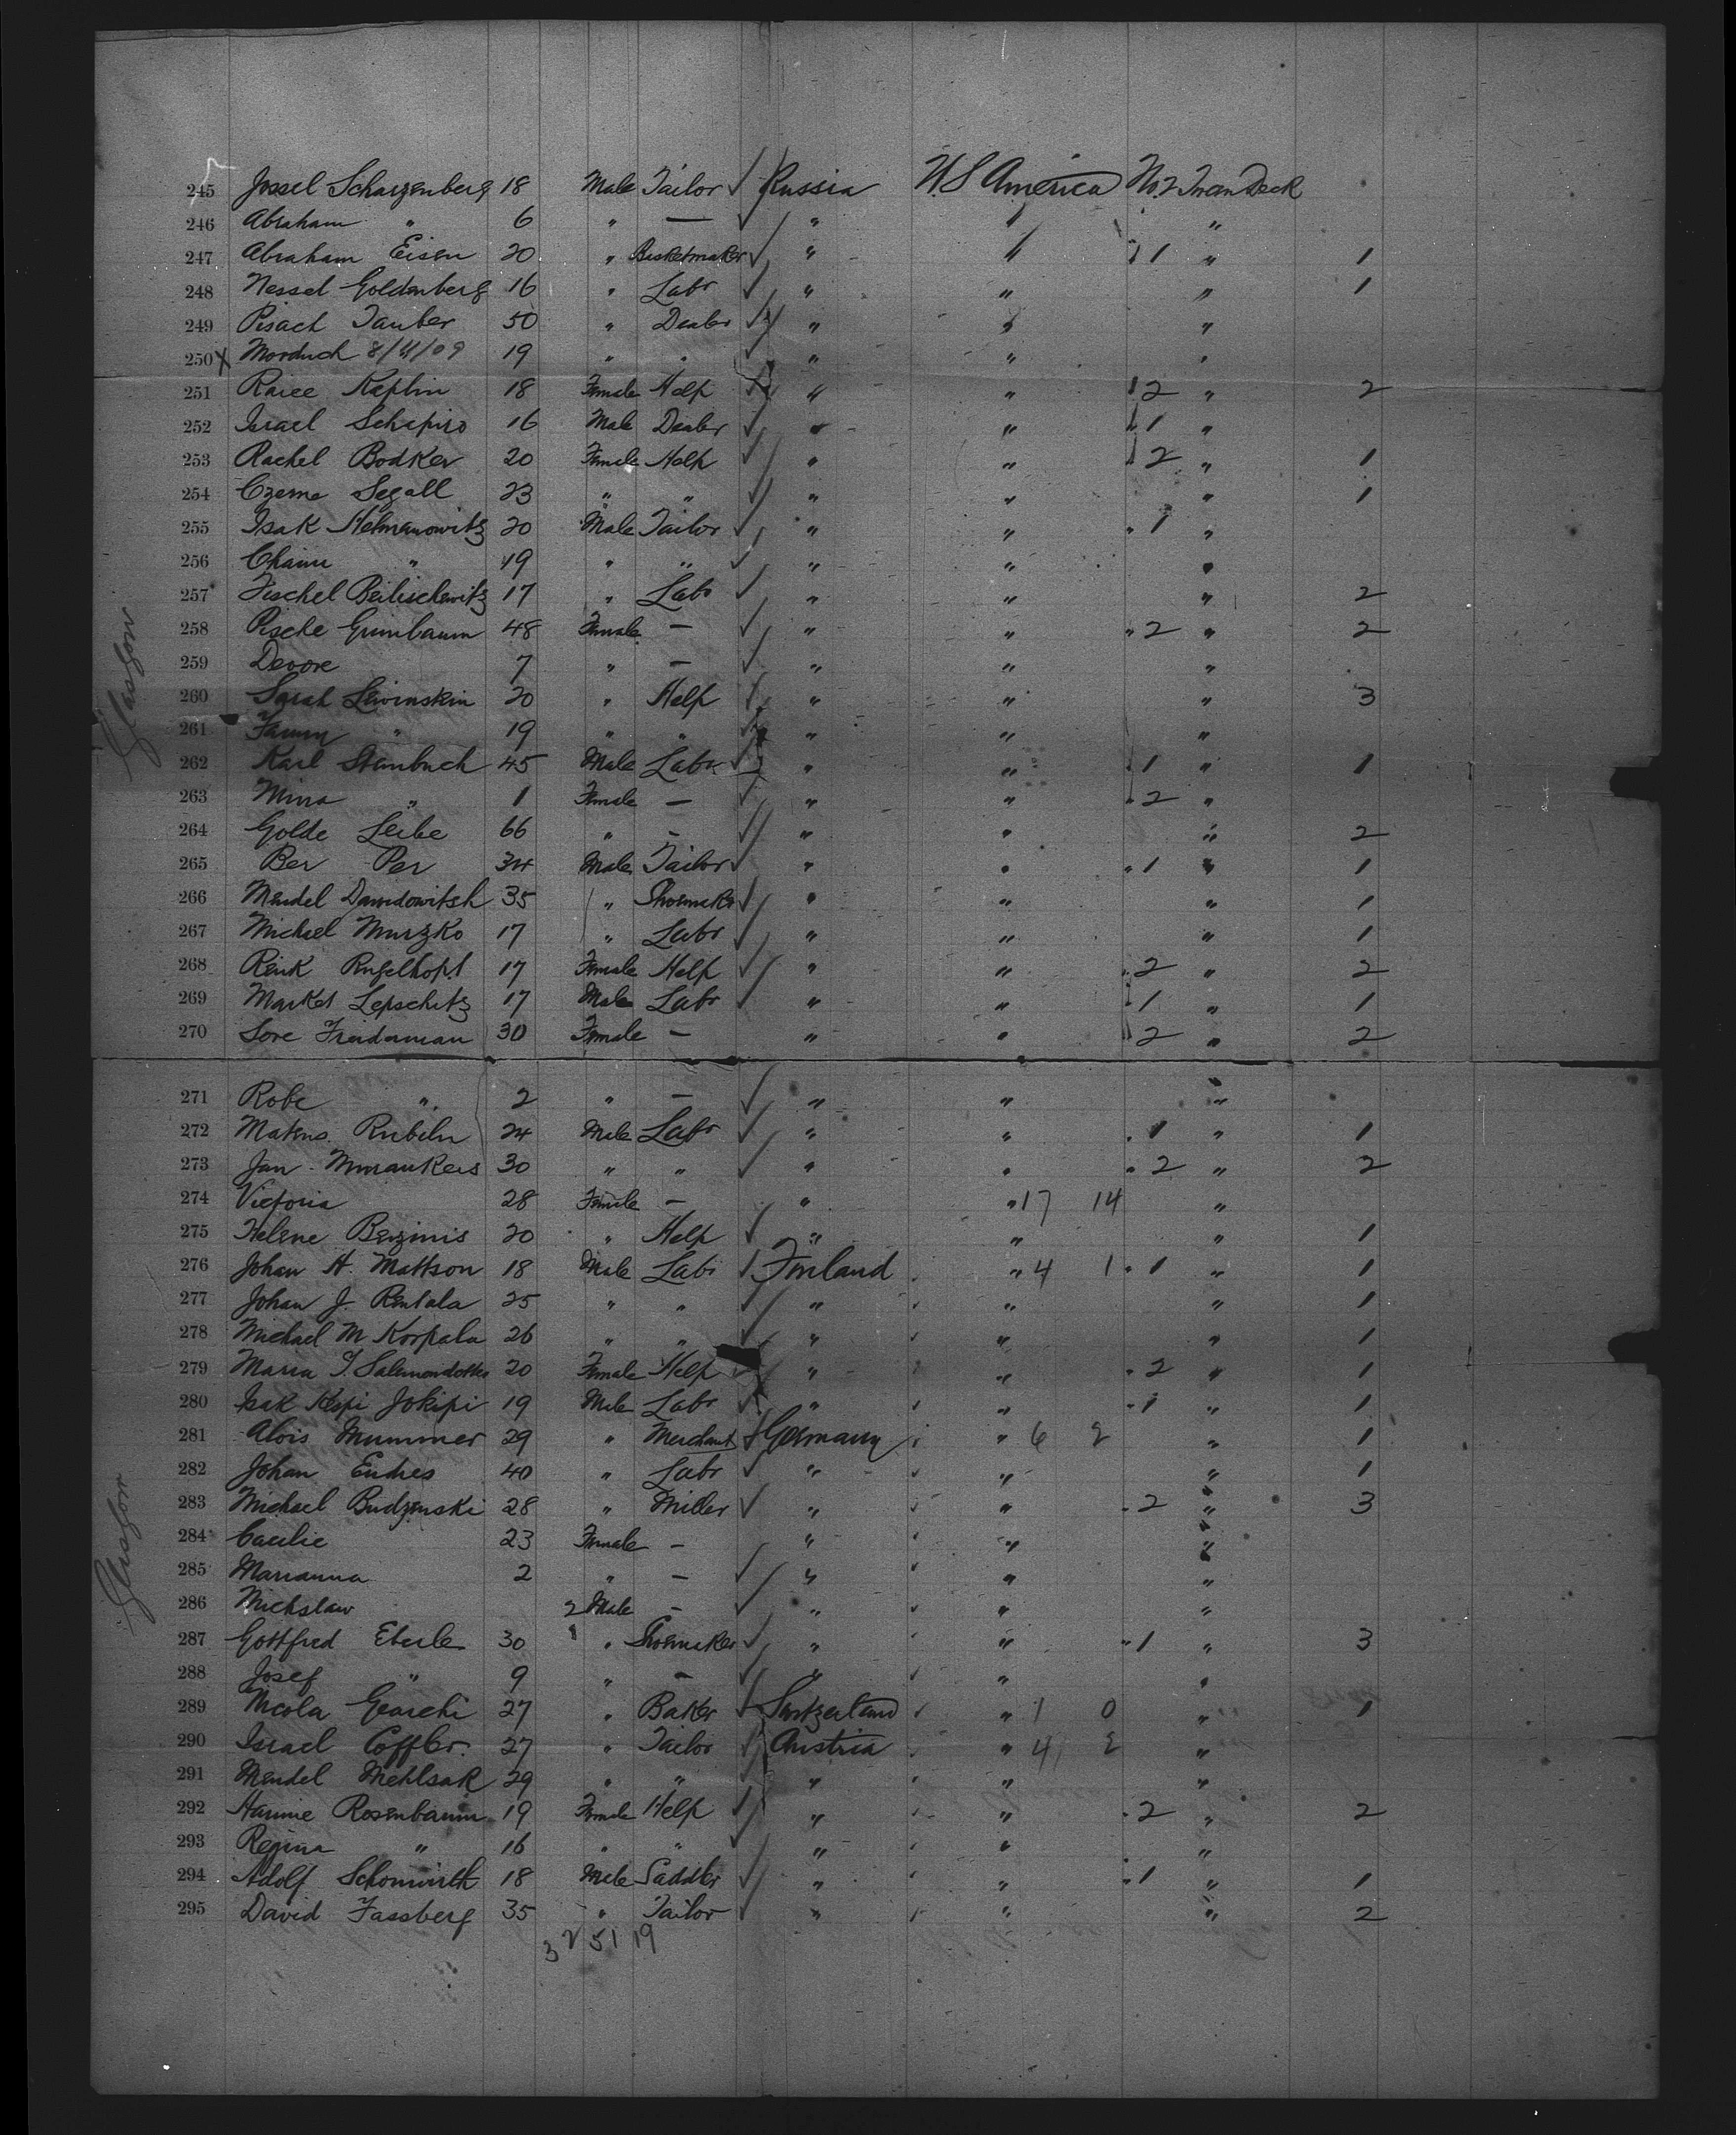 245 Jossel Scharzenberg 18 Male Tailor ✓ Russia U.S America No 2 Tween Deck
246 Abraham " 6 " — ✓ " " "
247 Abraham Eisen 20 " Basketmaker ✓ " " " 1 " 1
248 Nessel Goldenberg 16 " Labr ✓ " " " 1
249 Pisach Tauber 50 " Dealer ✓ " " "
250 X Morduch 8/4/09 19 " " ✓ " " "
251 Raice Kaplin 18 Female Help ✓ " " " 2 " 2
252 Israel Schapiro 16 Male Dealer ✓ " " " 1 "
253 Rachel Bodker 20 Female Help ✓ " " " 2 " 1
254 Czerne Segall 23 " " ✓ " " " 1
255 Isak Helmanowitz 20 Male Tailor ✓ " " " 1 "
256 Chaim " 19 " " ✓ " " "
257 Fischel Beilischewitz 17 " Labr ✓ " " " 2
258 Pische Grunbaum 48 Female — ✓ " " " 2 " 2
259 Devore 7 " — ✓ " " "
260 Sarah Lewinskin 20 " Help ✓ " " " 3
261 Fanny " 19 " " ✓ " " "
262 Karl Steinbuch 45 Male Labr ✓ " " " 1 " 1
263 Mina " 1 Female — ✓ " " " 2 "
264 Golde Leibe 66 " — ✓ " " " 2
265 Ber Per 34 Male Tailor ✓ " " " 1 " 1
266 Mendel Dawidowitsh 35 " Shoemaker ✓ " " " 1
267 Michael Murzko 17 " Labr ✓ " " " 1
268 Reuk 17 Female Help ✓ " " " 2 " 2
269 Markel Lepschitz 17 Male Labr ✓ " " " 1 " 1
270 Sore Freidaman 30 Female — " " " 2 " 2
Glasgow
271 Robe " 2 " — ✓ " " "
272 Rubeln 24 Male Labr ✓ " " " 1 " 1
273 Jan 30 " " ✓ " " " 2 " 2
274 Victoria 28 Female — " " 17 14 "
275 Helene Berzinis 20 " Help ✓ " " " 1
276 Johan H. Mattson 18 Male Labr ✓ Finland " 4 1 " 1 " 1
277 Johan J. Rentala 25 " " ✓ " " " 1
278 Michael M Korpala 26 " " ✓ " " " 1
279 Maria J. 20 Female Help ✓ " " " 2 " 1
280 Isak Jokipi 19 Male Labr ✓ " " " 1 " 1
281 Alois Mummer 29 " Merchant ✓ Germany " 6 2 " 1
282 Johan Endres 40 " Labr ✓ " " " 1
283 Michael Budzenski 28 " Miller ✓ " " " 2 " 3
284 Cacilie 23 Female — " " "
285 Marianna 2 " — ✓ " " "
286 Michslaw 2 Male — ✓ " " "
287 Gottfred Eberle 30 " Shoemaker ✓ " " " 1 " 3
288 Josef " 9 " — ✓ " " "
289 Nicola 27 " Baker ✓ Switzerland " 1 0 " 1
290 Israel Coffler 27 " Tailor ✓ Austria " 4 2 "
291 Mendel Mehlsak 29 " " ✓ " " "
292 Hannie Rosenbaum 19 Female Help ✓ " " " 2 " 2
293 Regina " 16 " " ✓ " " "
294 Adolf Schonwirth 18 Male Saddler ✓ " " " 1 " 1
295 David Fassberg 35 " Tailor ✓ " " " 2
Glasgow
3 2 51 19